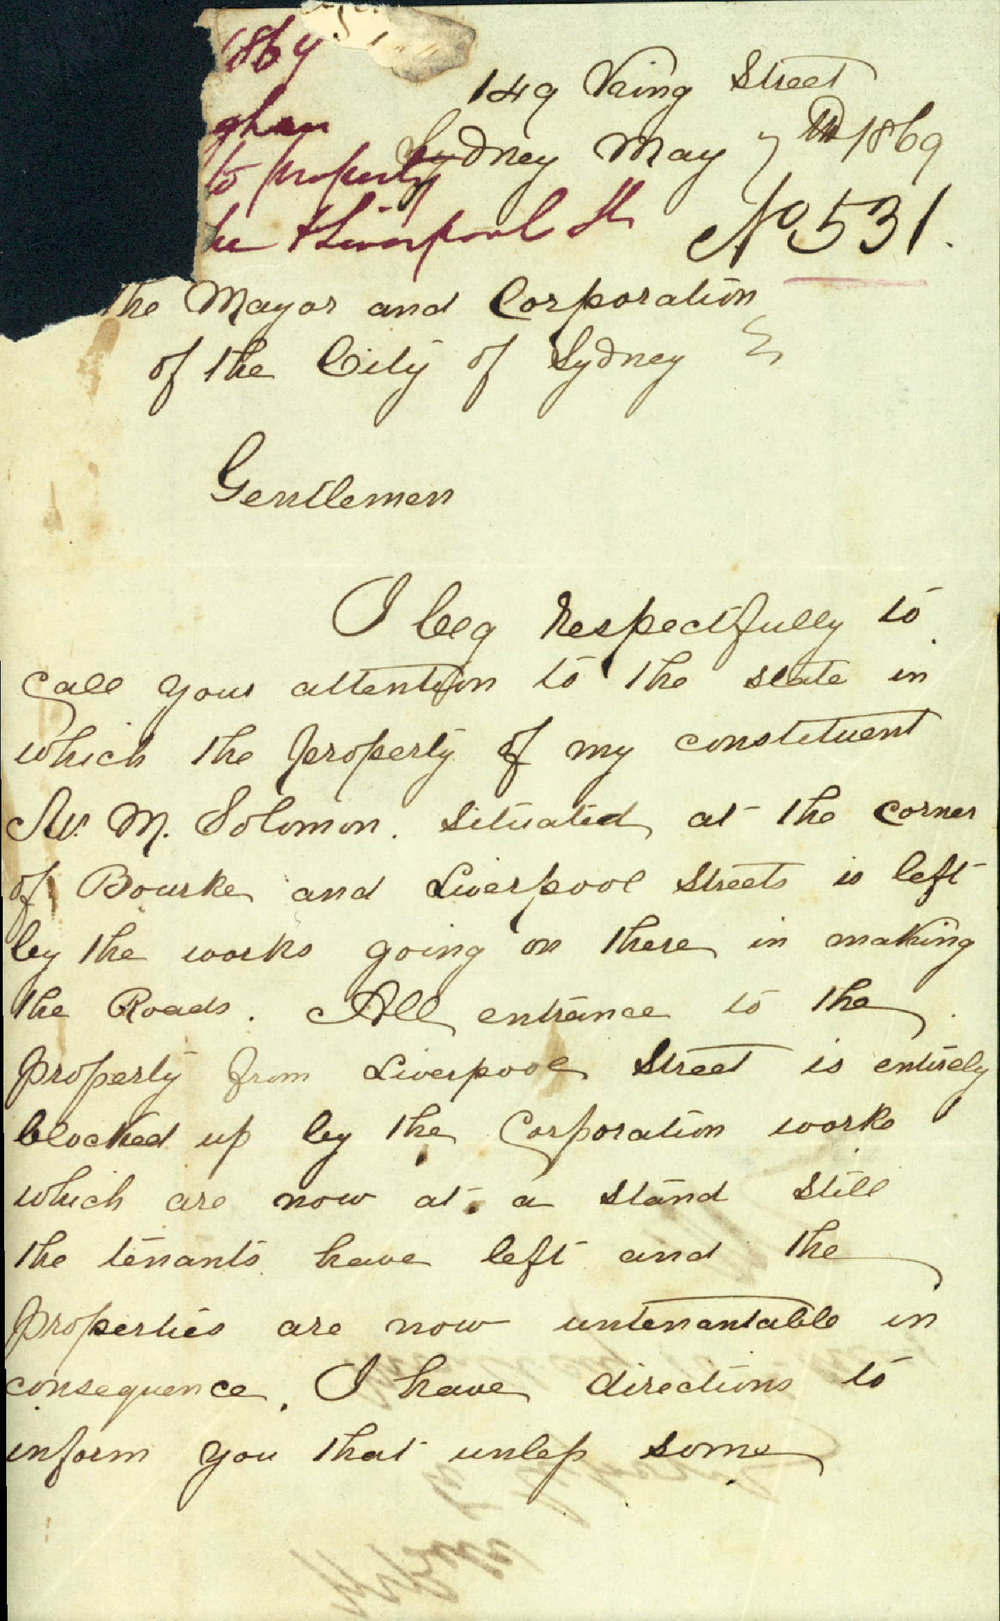 1869
ghan
to property
ke & Liverpool St
149 King Street
Sydney May 7th 1869
No 531.
The Mayor and Corporation
of the City of Sydney
Gentlemen
I beg respectfully to
call your attention to the state in
which the property of my constituent
Mr. M. Solomon. Situated at the corner
of Bourke and Liverpool Streets is left
by the works going on there in making
the Roads. All entrance to the
property from Liverpool Street is entirely
blocked up by the Corporation works
which are now at a stand still
the tenants have left and the
properties are now untenantable in
consequence. I have directions to
inform you that unless some